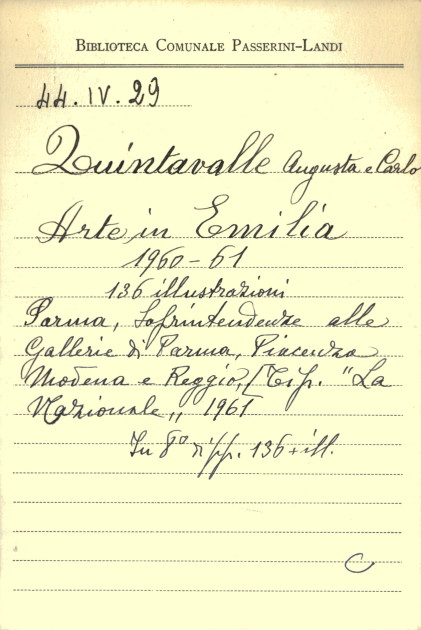 BIBLIOTECA COMUNALE PASSERINI-LANDI
44. IV. 29
Quintavalle Augusta e Carlo
Arte in Emilia
1960-61
136 illustrazioni
Parma, Soprintendenze alle
Gallerie di Parma, Piacenza
Modena e Reggio, (Tip. "La
Nazionale„ 1961
In 8° di pp. 136 + ill.
C